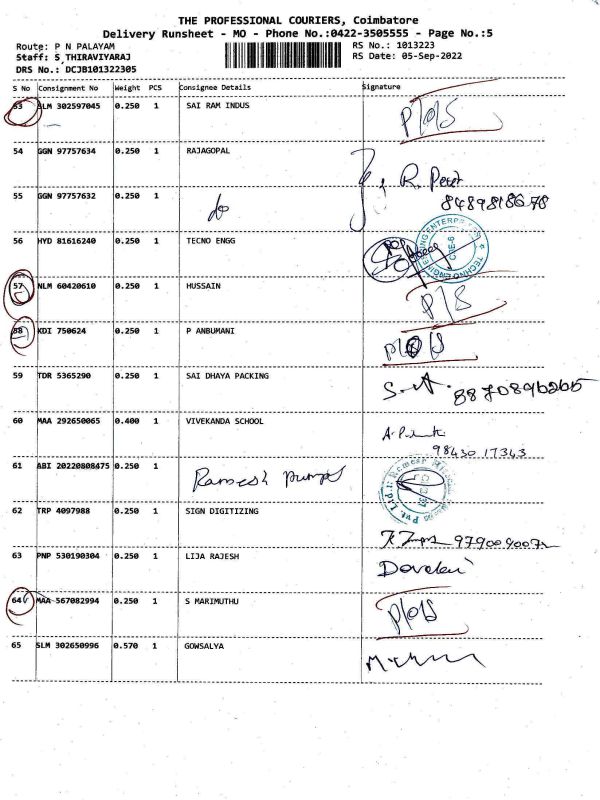 THE PROFESSIONAL COURIERS, Coimbatore
Delivery Runsheet - MO - Phone No.:0422-3505555 - Page No.:5
Route: P N PALAYAM RS No.: 1013223
Staff: S,THIRAVIYARAJ RS Date: 05-Sep-2022
DRS No.: DCJB101322305
S No Consignment No Weight PCS Consignee Details Signature
53 ALM 302597045 0.250 1 SAI RAM INDUS
54 GGN 97757634 0.250 1 RAJAGOPAL
R. Peter
8489818678
55 GGN 97757632 0.250 1 do
56 HYD 81616240 0.250 1 TECNO ENGG
57 NLM 60420610 0.250 1 HUSSAIN
58 KDI 750624 0.250 1 P ANBUMANI
59 TDR 5365290 0.250 1 SAI DHAYA PACKING
8870896265
60 MAA 292650065 0.400 1 VIVEKANDA SCHOOL
98430 17343
61 ABI 20220808475 0.250 1 Ramesh pumps
62 TRP 4097988 0.250 1 SIGN DIGITIZING
63 PNP 530190304 0.250 1 LIJA RAJESH
64 MAA 567082994 0.250 1 S MARIMUTHU
65 SLM 302650996 0.570 1 GOWSALYA